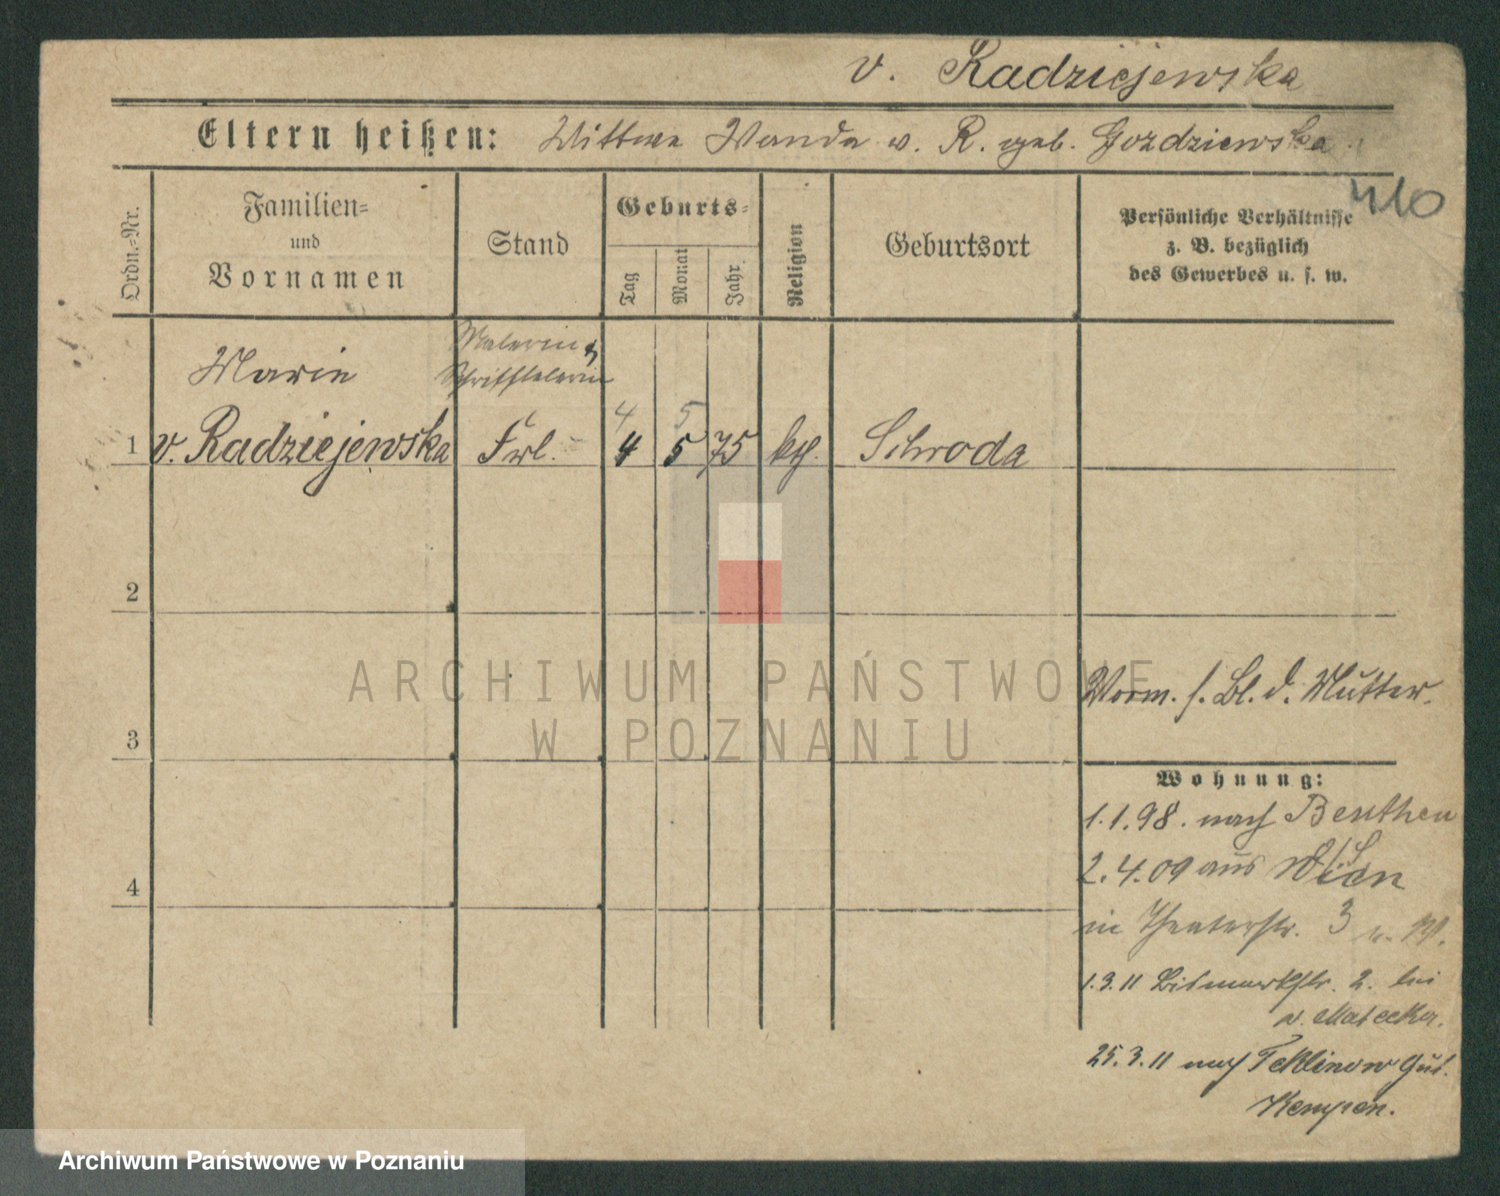 v. Radziejewska
Eltern heißen: Wittwe Wanda v. R. geb. Gozdziewska.
Ordn.-Nr.
Familien-
und
Vornamen
Stand
Geburts-
Tag
Monat
Jahr
Religion
Geburtsort
Persönliche Verhältnisse
z. B. bezüglich
des Gewerbes u. s. w.
Marie
Malerin &
Schriftstellerin
4 5
1 v. Radziejewska Frl. 4 5 75 kth. Schroda
2
Vorm. s. Bl. d. Mutter.
3
Wohnung:
1.1.98. nach Beuthen
2.4.09 aus Wien
4
in Theaterstr. 3
1.3.11 Bismarckstr. 2. bei
v. Malecka.
25.3.11 nach Teklinow Gut.
Kempen.
ARCHIWUM PAŃSTWOWE
W POZNANIU
Archiwum Państwowe w Poznaniu